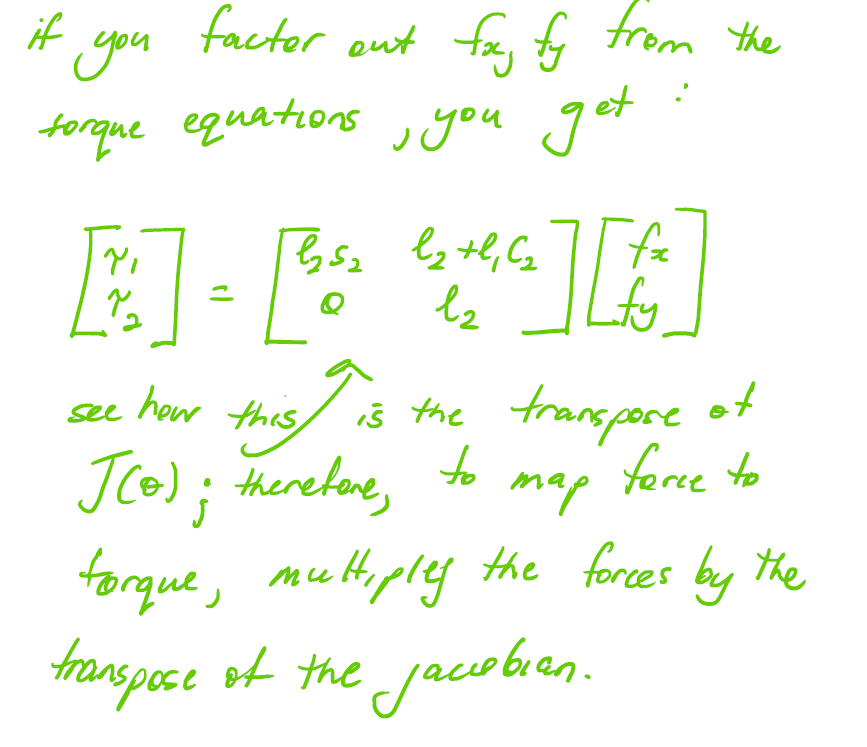 if you factor out fx, fy from the
torque equations, you get :
[τ₁ τ₂] = [l₂s₂ l₂+l₁c₂ 0 l₂] [fx fy]
see how this is the transpose of
J(θ); therefore, to map force to
torque, multiply the forces by the
transpose of the jacobian.